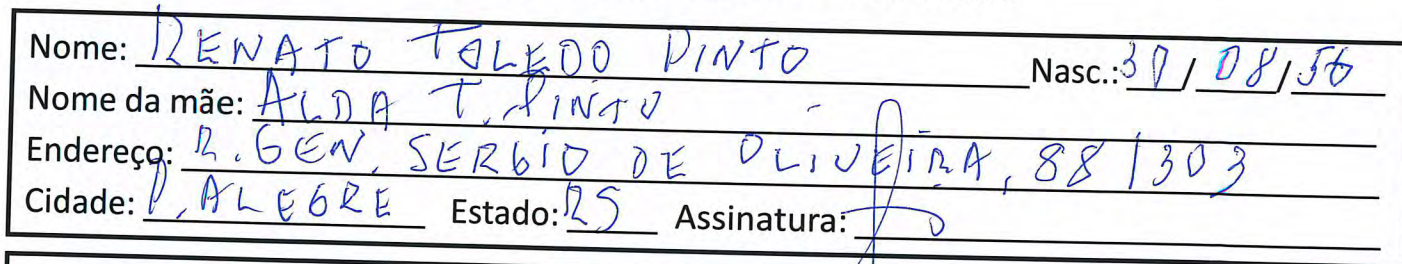 Nome: RENATO TOLEDO PINTO Nasc.: 30/08/56
Nome da mãe: ALDA T. PINTO
Endereço: R. GEN. SERGIO DE OLIVEIRA, 88/303
Cidade: P. ALEGRE Estado: RS Assinatura: